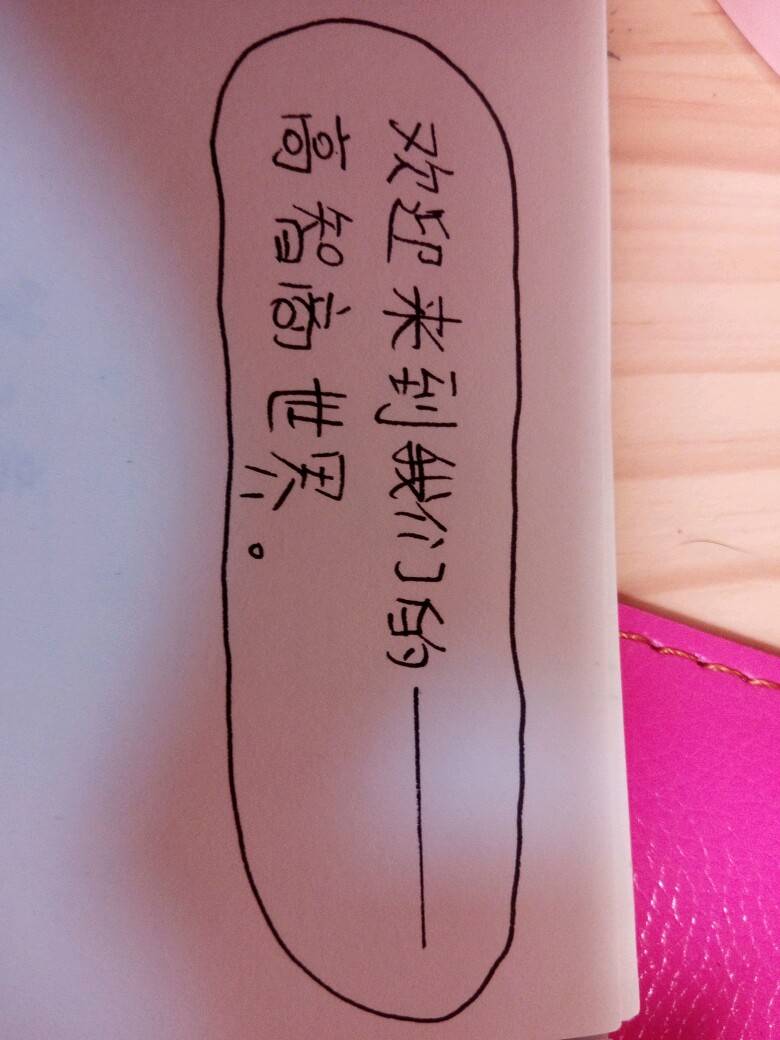 欢迎来到我们的——
高智商世界。